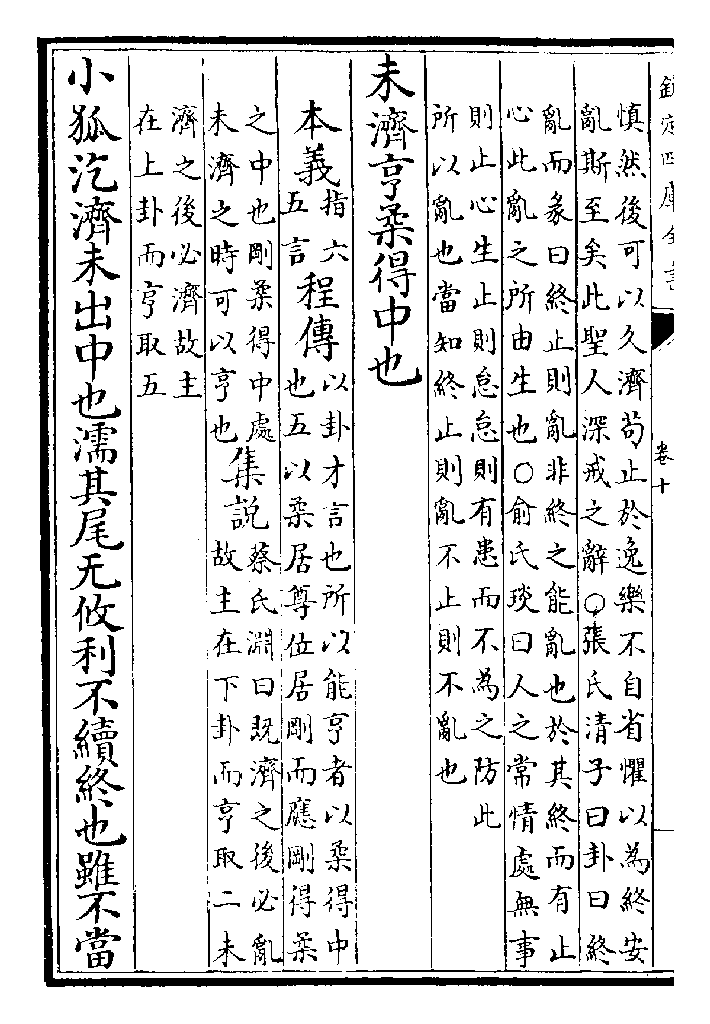 欽定四庫全書
卷十
慎然後可以久濟苟止於逸樂不自省懼以為終安
亂斯至矣此聖人深戒之辭○張氏清子曰卦曰終
亂而彖曰終止則亂非終之能亂也於其終而有止
心此亂之所由生也○俞氏琰曰人之常情處無事
則止心生止則怠怠則有患而不為之防此
所以亂也當知終止則亂不止則不亂也
未濟亨柔得中也
本義
指六
五言
程傳
以卦才言也所以能亨者以柔得中
也五以柔居尊位居剛而應剛得柔
之中也剛柔得中處
未濟之時可以亨也
集說
蔡氏淵曰既濟之後必亂
故主在下卦而亨取二未
濟之後必濟故主
在上卦而亨取五
小狐汔濟未出中也濡其尾无攸利不續終也雖不當